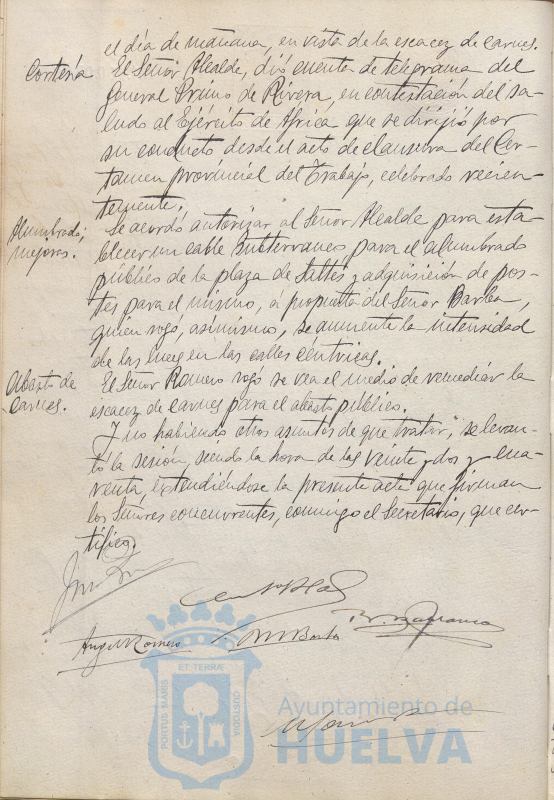 el día de mañana, en vista de la escacez de carnes.
Cortesía
El Señor Alcalde, dió cuenta de telegrama del
General Primo de Rivera, en contestación del sa-
ludo al Ejército de Africa que se dirigió por
su conducto desde el acto de clausura del Cer-
tamen provincial del Trabajo, celebrado recien-
temente.
Alumbrado;
mejoras.
Se acordó autorizar al Señor Alcalde para esta-
blecer un cable subterraneo para el alumbrado
público de la plaza de Saltés y adquisición de pos-
tes para el mismo, a propuesta del Señor Barba,
quien rogó, asimismo, se aumente la intensidad
de las luces en las calles céntricas.
Abasto de
carnes.
El Señor Romero rogó se vea el medio de remediar la
escacez de carnes para el abasto público.
Y no habiendo otros asuntos de que tratar, se levan-
tó la sesión, siendo la hora de las veinte y dos y cua-
renta, extendiéndose la presente acta que firman
los Señores concurrentes, conmigo el Secretario, que cer-
tifico.
Angel Romero
M Barba
PORTUS MARIS ET TERRÆ CUSTODIA
Ayuntamiento de
HUELVA